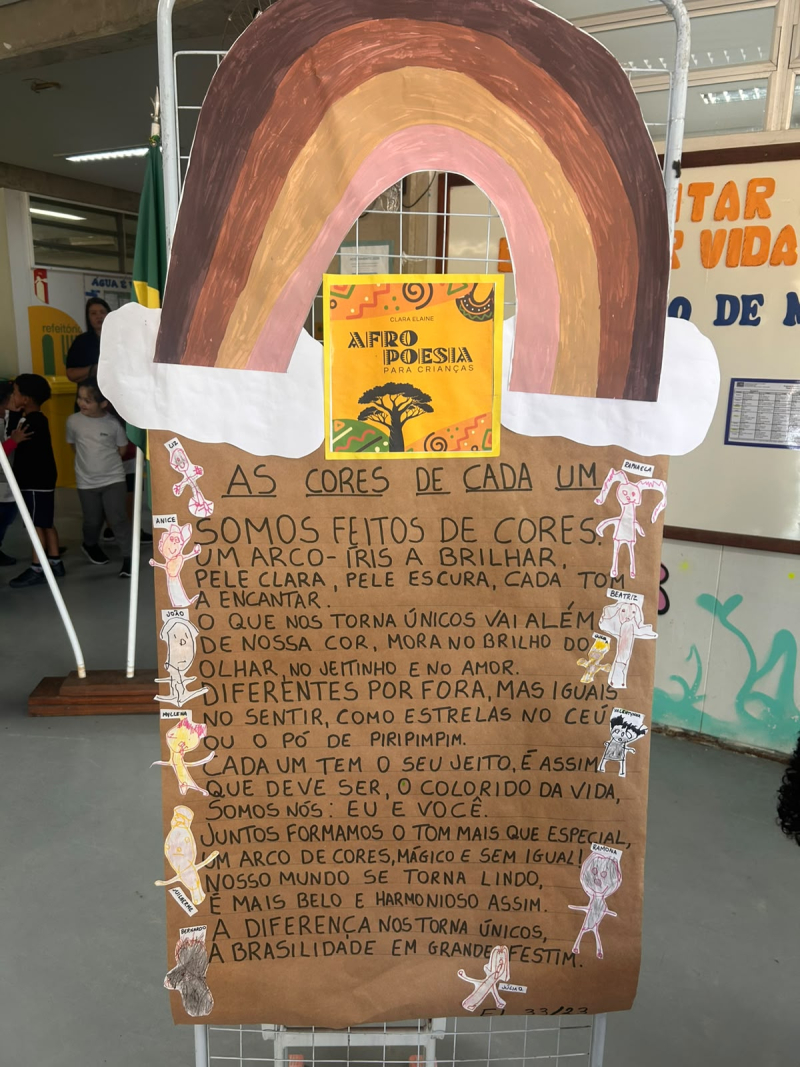 ITAR
R VIDA
O DE M
ÁGUA E
refeitório
CLARA ELAINE
AFRO
POESIA
PARA CRIANÇAS
AS CORES DE CADA UM
SOMOS FEITOS DE CORES.
UM ARCO-ÍRIS A BRILHAR,
PELE CLARA, PELE ESCURA, CADA TOM
A ENCANTAR.
O QUE NOS TORNA ÚNICOS VAI ALÉM
DE NOSSA COR, MORA NO BRILHO DO
OLHAR, NO JEITINHO E NO AMOR.
DIFERENTES POR FORA, MAS IGUAIS
NO SENTIR, COMO ESTRELAS NO CEÚ
OU O PÓ DE PIRIPIMPIM.
CADA UM TEM O SEU JEITO, É ASSIM
QUE DEVE SER, O COLORIDO DA VIDA,
SOMOS NÓS: EU E VOCÊ.
JUNTOS FORMAMOS O TOM MAIS QUE ESPECIAL,
UM ARCO DE CORES, MÁGICO E SEM IGUAL!
NOSSO MUNDO SE TORNA LINDO,
É MAIS BELO E HARMONIOSO ASSIM.
A DIFERENÇA NOS TORNA ÚNICOS,
A BRASILIDADE EM GRANDE FESTIM.
LIZ
ANICE
JOÃO
MYLLENA
GUILHERME
BERNARDO
RAPHAELA
BEATRIZ
RAMONA